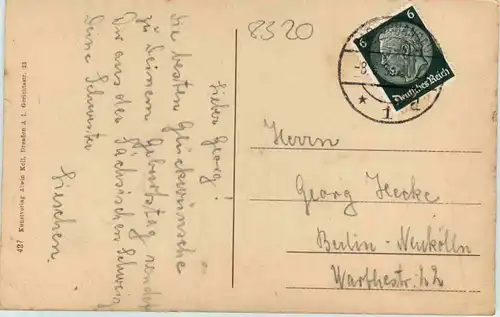 8320
Lieber Georg!
Die besten Glückwünsche
zu Deinem Geburtstag sendet
Dir aus der Sächsischen Schweiz
Deine Schwester
Lieschen.
Herrn
Georg Hecke
Berlin-Neukölln
Warthestr. 22
6 6
Deutsches Reich
427 Kunstverlag Alwin Keil, Dresden A 1, Gerichtsstr. 23